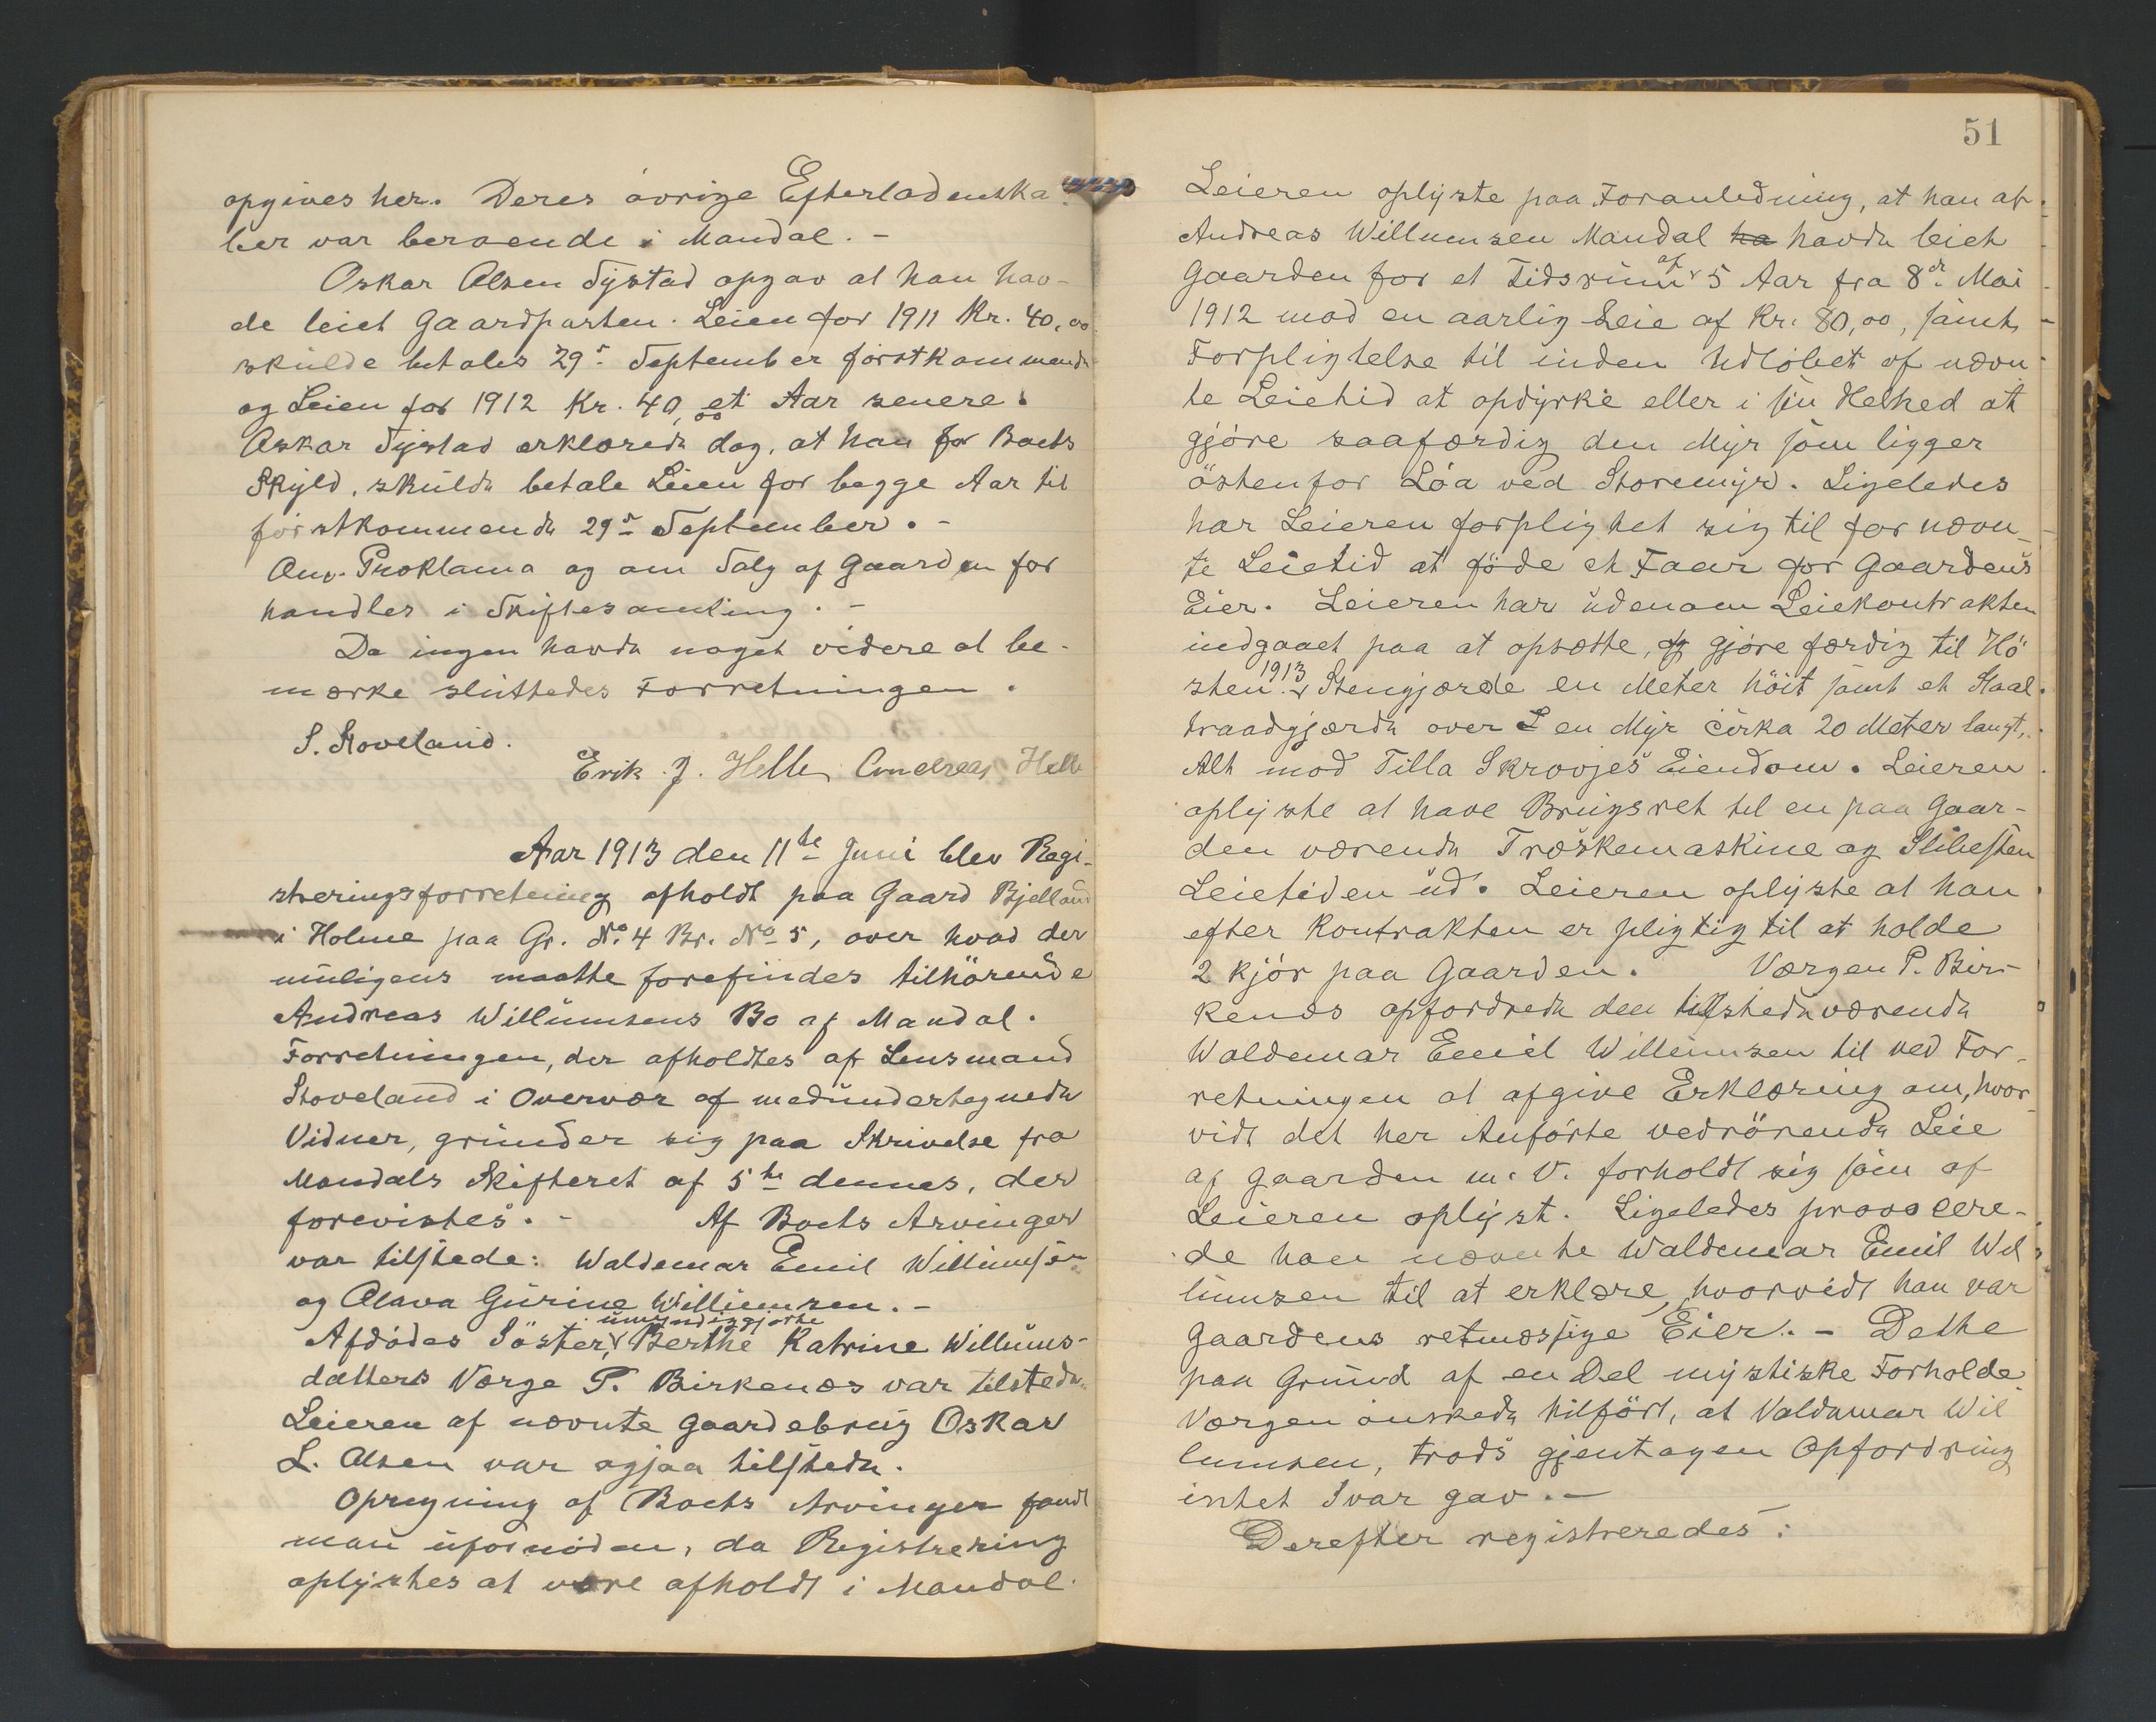 opgives her. Deres övrige Efterladenska-
ber var beroende i Mandal. -
Oskar Olsen Systad opgav at han hav-
de leiet Gaardparten. Leien for 1911 Kr. 40,00
skulde betales 29de September förstkommende
og Leien for 1912 Kr. 40,00 et Aar senere.
Oskar Systad erklærede dog, at han for Boets
Skyld, skulde betale Leien for begge Aar til
förstkommende 29de September. -
Om Proklama og om Salg af Gaarden for
handles i Skiftesamling. -
Da ingen havde noget videre at be-
mærke sluttedes Forretningen.
S. Stoveland.
Erik J. Helle Andreas Helle
Aar 1913 den 11te Juni blev Regi-
streringsforretning afholdt paa Gaard Bjelland
i Holme paa Gr. No. 4 Br. No 5, over hvad der
muligens maatte forefindes tilhörende
Andreas Willumsens Bo af Mandal.
Forretningen, der afholdtes af Lensmand
Stoveland i Overvær af medundertegnede
Vidner, grunder sig paa Skrivelse fra
Mandals Skifteret af 5te dennes, der
forevistes. - Af Boets Arvinger
var tilstede: Waldemar Emil Willumsen
og Olava Gurine Willumsen. -
umyndiggjorte
Afdödes Söster, Berthe Katrine Willums-
datters Værge P. Birkenæs var tilstede.
Leieren af nævnte Gaardebrug Oskar
L. Olsen var ogsaa tilstede.
Opregning af Boets Arvinger fandt
man ufornöden, da Registrering
oplystes at være afholdt i Mandal.
51
Leieren oplyste paa Foranledning, at han af
Andreas Willumsen Mandal ha havde leiet
Gaarden for et Tidsrum af 5 Aar fra 8de Mai
1912 mod en aarlig Leie af Kr. 80,00, samt
Forpligtelse til inden Udlöbet af nævn-
te Leietid at opdyrke eller i sin Helhed at
gjöre saafærdig den Myr som ligger
östenfor Löa ved Storemyr. Ligeledes
har Leieren forpligtet sig til for nævn-
te Leietid at föde et Faar for Gaardens
Eier. Leieren har udenom Leiekontrakten
indgaaet paa at opsætte, og gjöre færdig til Hö
sten 1913 Stengjærde en Meter höit samt et Staal-
traadgjærde over en Myr cirka 20 Meter langt,
Alt mod Tilla Skrovjes Eiendom. Leieren
oplyste at have Brugsret til en paa Gaar-
den værende Træskemaskine og Slibesten
Leietiden ud. Leieren oplyste at han
efter Kontrakten er pligtig til at holde
2 Kjör paa Gaarden. Værgen P. Bir-
kenæs opfordrede den tilstedeværende
Waldemar Emil Willumsen til ved For-
retningen at afgive Erklæring om, hvor-
vidt det her Anförte vedrörende Leie
af Gaarden m. V. forholdt sig som af
Leieren oplyst. Ligeledes provocere-
de han nævnte Waldemar Emil Wil
lumsen til at erklære, hvorvidt han var
Gaardens retmæssige Eier. - Dette
paa Grund af en Del mystiske Forholde.
Værgen önskede tilfört, at Valdemar Wil
lumsen, trods gjentagen Opfordring
intet Svar gav. -
Derefter registreredes: